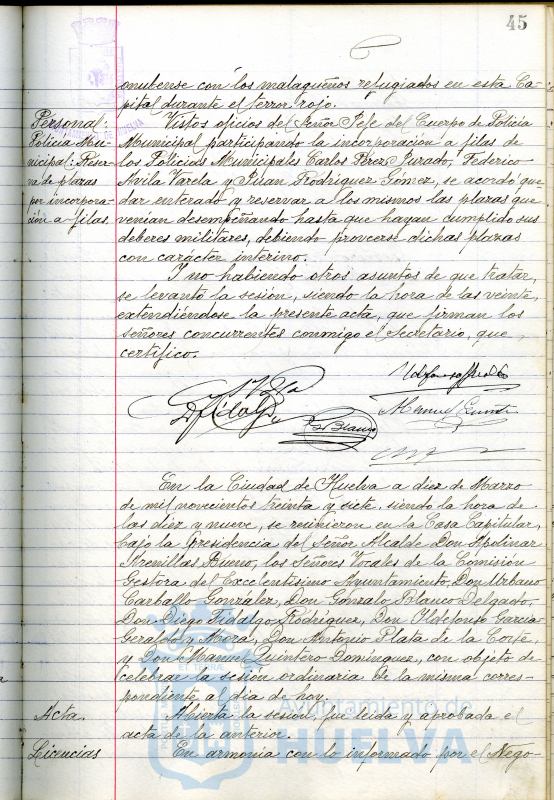 45
onubense con los malagueños refugiados en esta Ca-
pital durante el terror rojo.
Personal:
Policia Mu-
nicipal: Reser-
va de plazas
por incorpora-
ción a filas.
Vistos oficios del Señor Jefe del Cuerpo de Policia
Municipal participando la incorporación a filas de
los Policias Municipales Carlos Pérez Jurado, Federico
Avila Varela y Juan Rodriguez Gómez, se acordó que-
dar enterado y reservar a los mismos las plazas que
venian desempeñando hasta que hayan cumplido sus
deberes militares, debiendo proveerse dichas plazas
con carácter interino.
Y no habiendo otros asuntos de que tratar,
se levantó la sesión, siendo la hora de las veinte,
extendiéndose la presente acta, que firman los
señores concurrentes conmigo el Secretario, que
certifico.
En la Ciudad de Huelva a diez de Marzo
de mil novecientos treinta y siete, siendo la hora de
las diez y nueve, se reunieron en la Casa Capitular,
bajo la presidencia del Señor Alcalde Don Apolinar
Arenillas Bueno, los Señores Vocales de la Comisión
Gestora del Excelentísimo Ayuntamiento Don Urbano
Carballo González, Don Gonzalo Blanco Delgado,
Don Diego Hidalgo Rodriguez, Don Ildefonso Garcia
Geraldo y Mora, Don Antonio Plata de la Corte,
y Don Manuel Quintero Dominguez, con objeto de
celebrar la sesión ordinaria de la misma corres-
pondiente al dia de hoy.
Acta.
Abierta la sesión, fue leida y aprobada el
acta de la anterior.
Licencias
En armonía con lo informado por el Nego-
Ayuntamiento de
HUELVA